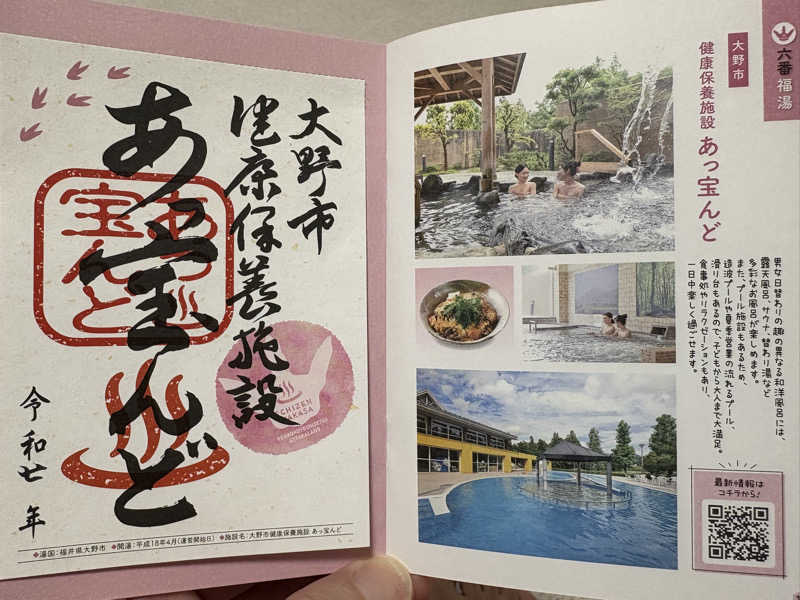 大野市
健康保養施設
あっ宝んど
令和七年
あっ
宝
んど
CHIZEN
◆湯国:福井県大野市 ◆開湯:平成18年4月(運営開始日) ◆施設名:大野市健康保養施設 あっ宝んど
六番福湯
大野市
健康保養施設 あっ宝んど
男女日替わりの趣の異なる和洋風呂には、
露天風呂、サウナ、替わり湯など
多彩なお風呂が楽しめます。
また、プール施設もあるため、
造波プールや夏季営業の流れるプール、
滑り台もあるので、子どもから大人まで大満足。
食事処やリラクゼーションもあり、
一日中楽しく過ごせます。
最新情報は
コチラから!